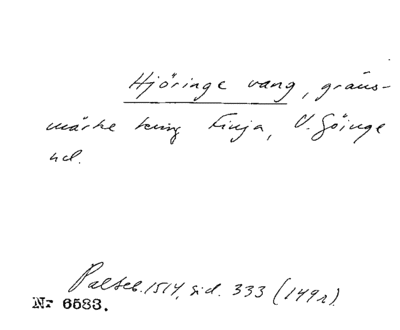 Hjöringe vang, gräns-
märke kring Finja, V. Göinge
hd.
Palteb. 1514, sid. 333 (149r)
Nr 6583.